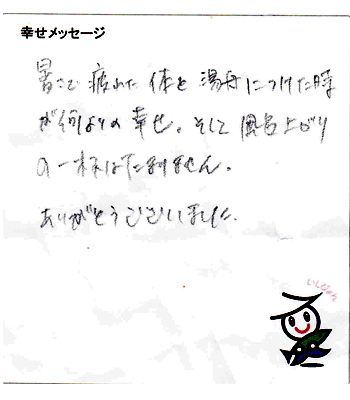 幸せメッセージ
暑さで疲れた体を湯舟につけた時
が何よりの幸せ。そして風呂上がり
の一杯はたまりません。
ありがとうございました